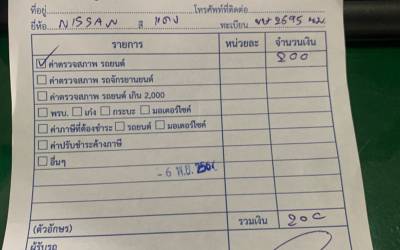 ที่อยู่ โทรศัพท์ที่ติดต่อ
ยี่ห้อ NISSAN สี แดง ทะเบียน 2695
รายการ หน่วยละ จำนวนเงิน
ค่าตรวจสภาพ รถยนต์ 200
ค่าตรวจสภาพ รถจักรยานยนต์
ค่าตรวจสภาพ รถยนต์ เกิน 2,000
พรบ. เก๋ง กระบะ มอเตอร์ไซค์
ค่าภาษีที่ต้องชำระ รถยนต์ มอเตอร์ไซค์
ค่าปรับชำระค้างภาษี
อื่นๆ
- 6 พ.ย.
(ตัวอักษร) รวมเงิน 200
ผู้รับรถ